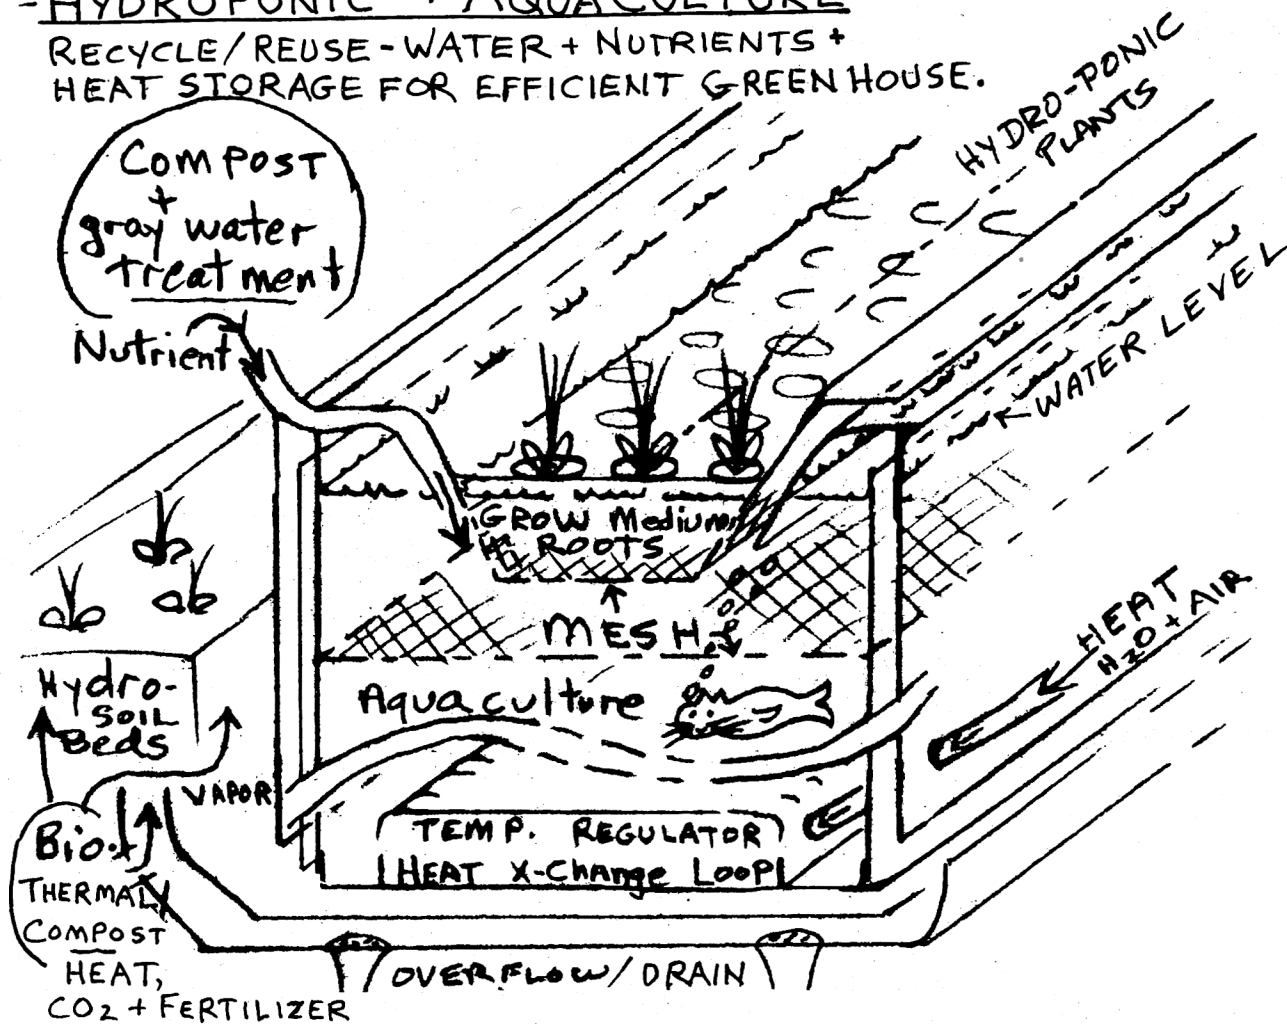 - HYDROPONIC + AQUACULTURE
RECYCLE/REUSE-WATER + NUTRIENTS +
HEAT STORAGE FOR EFFICIENT GREENHOUSE.
HYDRO-PONIC
PLANTS
COMPOST
+
gray water
treatment
Nutrient
WATER LEVEL
GROW Medium
ROOTS
MESH
HEAT
H2O + AIR
Hydro-
SOIL
Beds
Aquaculture
VAPOR
TEMP. REGULATOR
HEAT X-Change LOOP
Bio-
THERMAL
COMPOST
HEAT,
CO2 + FERTILIZER
OVERFLOW/DRAIN